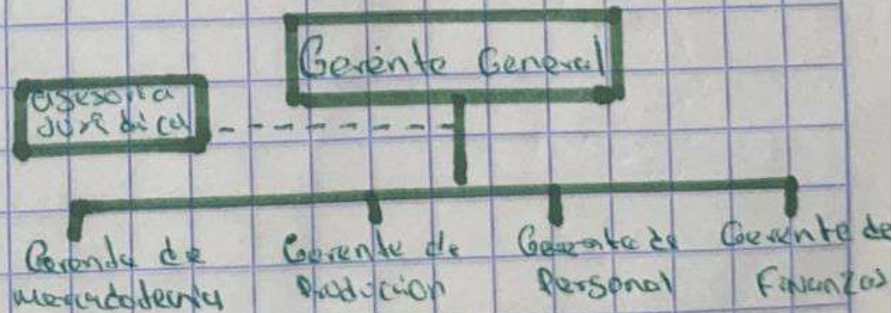 Gerente General
asesoria
juridica
Gerente de
mercadotecnia
Gerente de
Producion
Gerente de
Personal
Gerente de
Finanzas